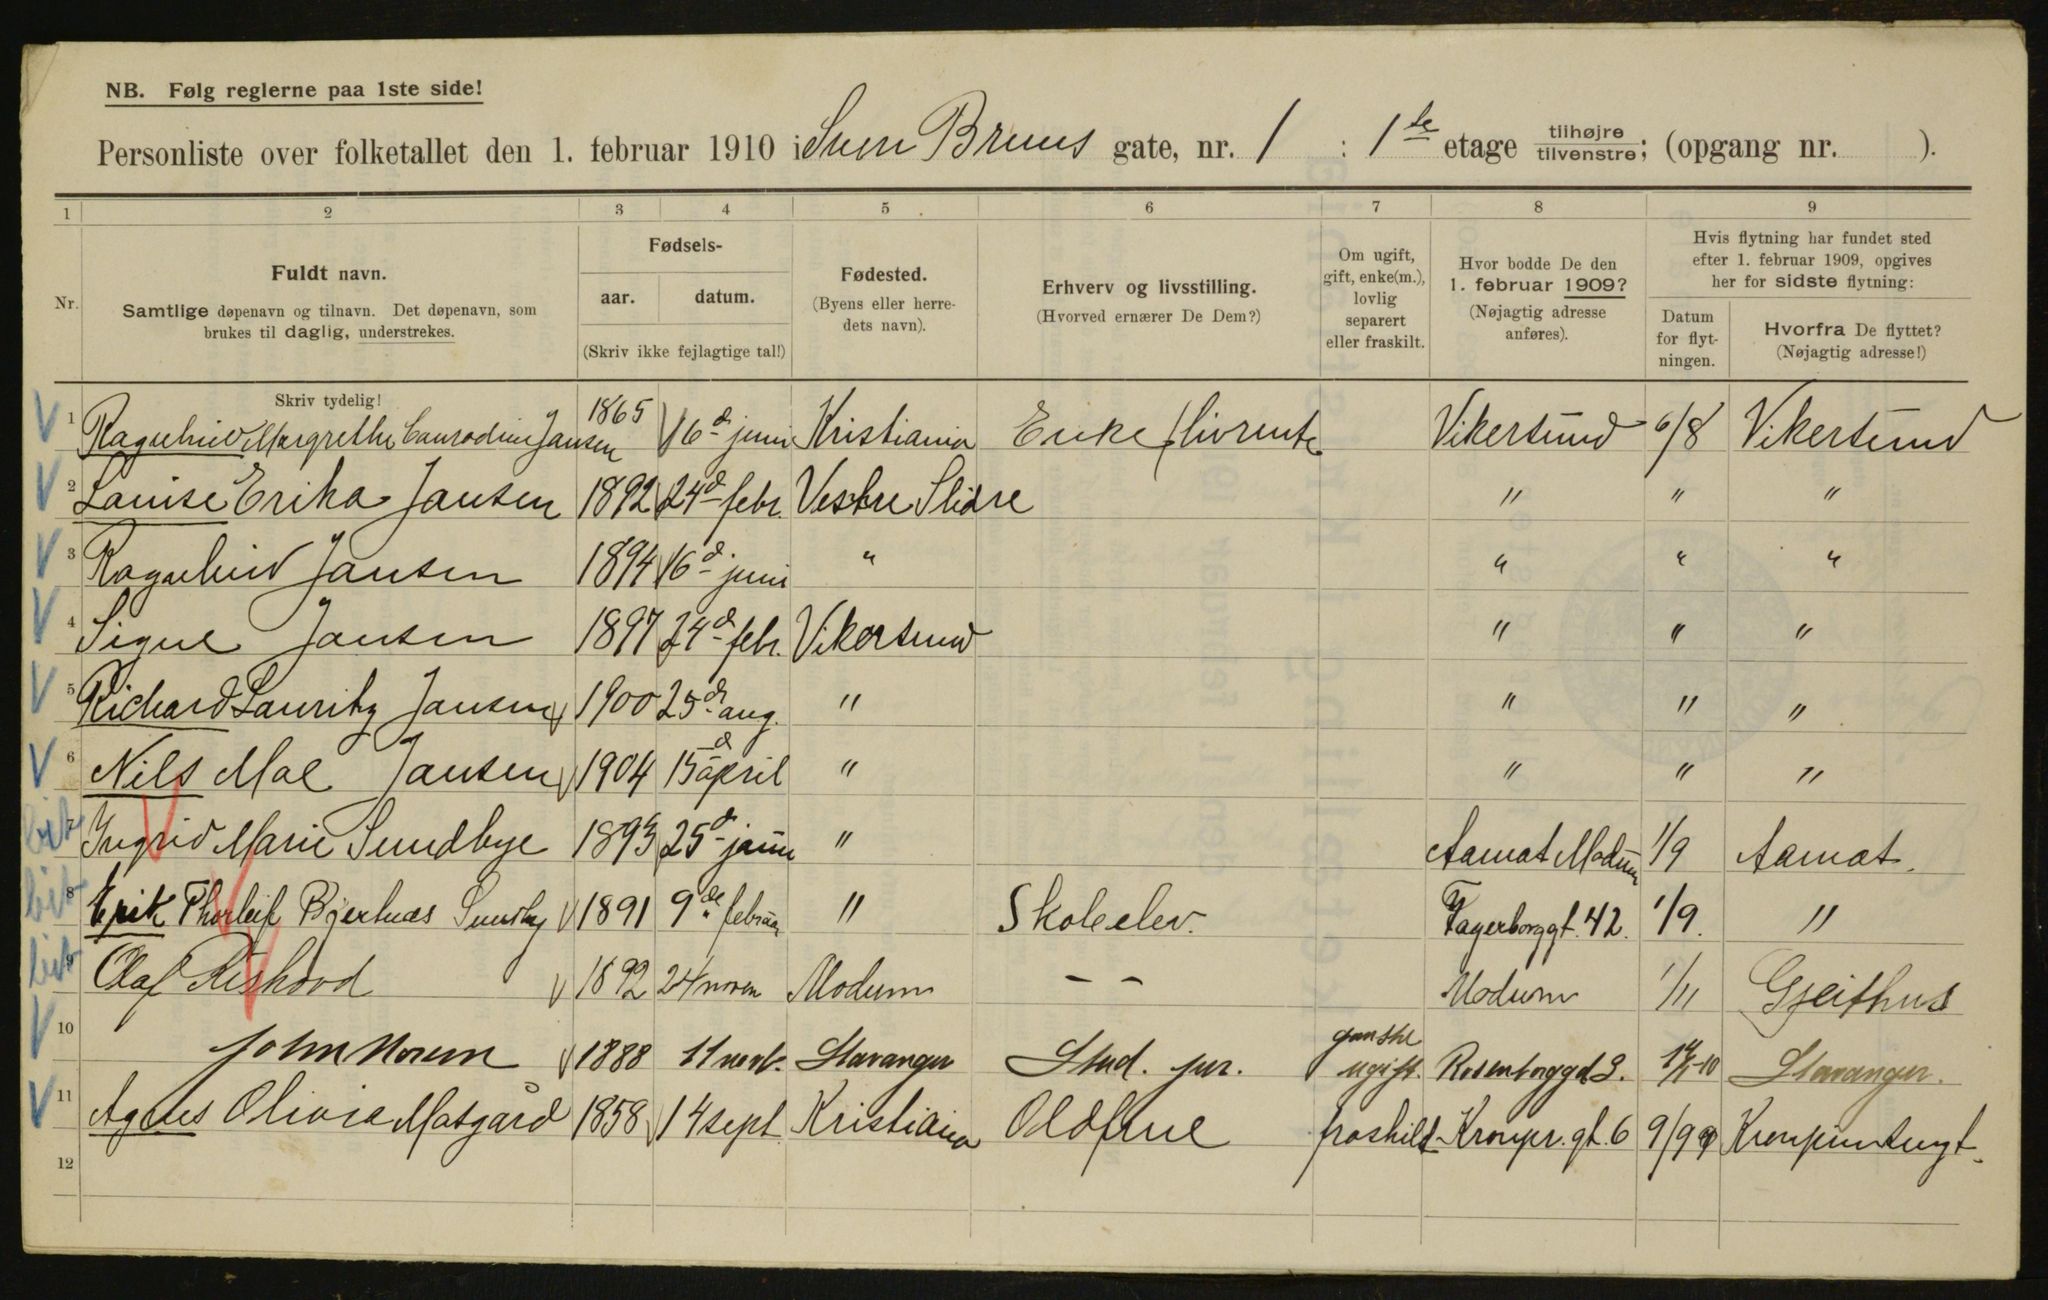 NB. Følg reglerne paa 1ste side!
Personliste over folketallet den 1. februar 1910 i Sven Bruns gate, nr. 1 : 1ste etage tilhøjre/tilvenstre; (opgang nr. ).
1 2 3 4 5 6 7 8 9
Nr.
Fuldt navn.
Samtlige døpenavn og tilnavn. Det døpenavn, som
brukes til daglig, understrekes.
Skriv tydelig!
Fødsels-
aar. datum.
(Skriv ikke fejlagtige tal!)
Fødested.
(Byens eller herre-
dets navn).
Erhverv og livsstilling.
(Hvorved ernærer De Dem?)
Om ugift,
gift, enke(m.),
lovlig
separert
eller fraskilt.
Hvor bodde De den
1. februar 1909?
(Nøjagtig adresse
anføres).
Hvis flytning har fundet sted
efter 1. februar 1909, opgives
her for sidste flytning:
Datum
for flyt-
ningen.
Hvorfra De flyttet?
(Nøjagtig adresse!)
1 Ragnhild Margrethe Conradine Jansen 1865 16d juni Kristiania Enke Livrente Vikersund 6/8 Vikersund
2 Louise Erika Jansen 1892 24d febr. Vestre Slidre " " "
3 Ragnhild Jansen 1894 16d juni " " " "
4 Signe Jansen 1897 24d febr. Vikersund " " "
5 Richard Lauritz Jansen 1900 25d aug. " " " "
6 Nils Moe Jansen 1904 15d april " " " "
7 Ingrid Marie Sundbye 1893 25d " Aamot Modum 1/9 Aamot.
8 Erik Thorleif Bjerknæs Sundby 1891 9de februar " Skoleelev. Fagerborggt. 42. 1/9. "
9 Olaf 1892 24 novem Modum — — Modum 1/11 Gjeithus
10 John Norem 1888 11 novb. Stavanger Stud. jur. ganske ugift. Rosenborggd 3. Stavanger.
11 Agnes Olivia Mosgård 1858 14 sept Kristiania Oldfrue fraskilt Kronpr. gt. 6 9/9 09
12